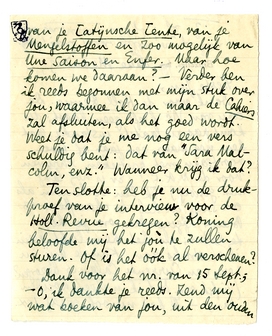 van je Latijnsche Lente, van je
Mengelstoffen en zoo mogelijk van
Une Saison en Enfer. Maar hoe
komen we daaraan? — Verder ben
ik reeds begonnen met mijn stuk over
jou, waarmee ik dan maar de Cahiers
zal afsluiten, als het goed wordt.
Weet je dat je me nog een vers
schuldig bent: dat van "Sara Mal-
colm, enz." Wanneer krijg ik dat?
Ten slotte: heb je nu de druk-
proef van je interview voor de
Holl. Revue gekregen? Koning
beloofde mij het jou te zullen
sturen. Of is het ook al verschenen?
Dank voor het nr. van 15 Sept;
— O, ik dankte je reeds. Zend mij
wat boeken van jou, uit den ouden